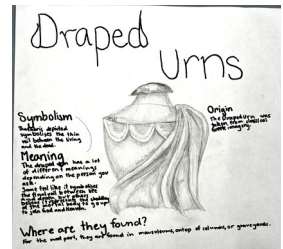 Draped
Urns
Symbolism
The fabric depicted
symbolises the thin
veil between the living
and the dead.
Meaning
The draped urn has a lot
of different meanings
depending on the person you
ask.
Some feel like it symbolizes
the final veil between life
and death, but others
believe it represents the shedding
of the mortal body to go up
to join God and Heaven.
Origin
The Draped Urn was
taken from classical
Greek imagery.
Where are they found?
For the most part, they are found in mausoleums, ontop of columns, or graveyards.